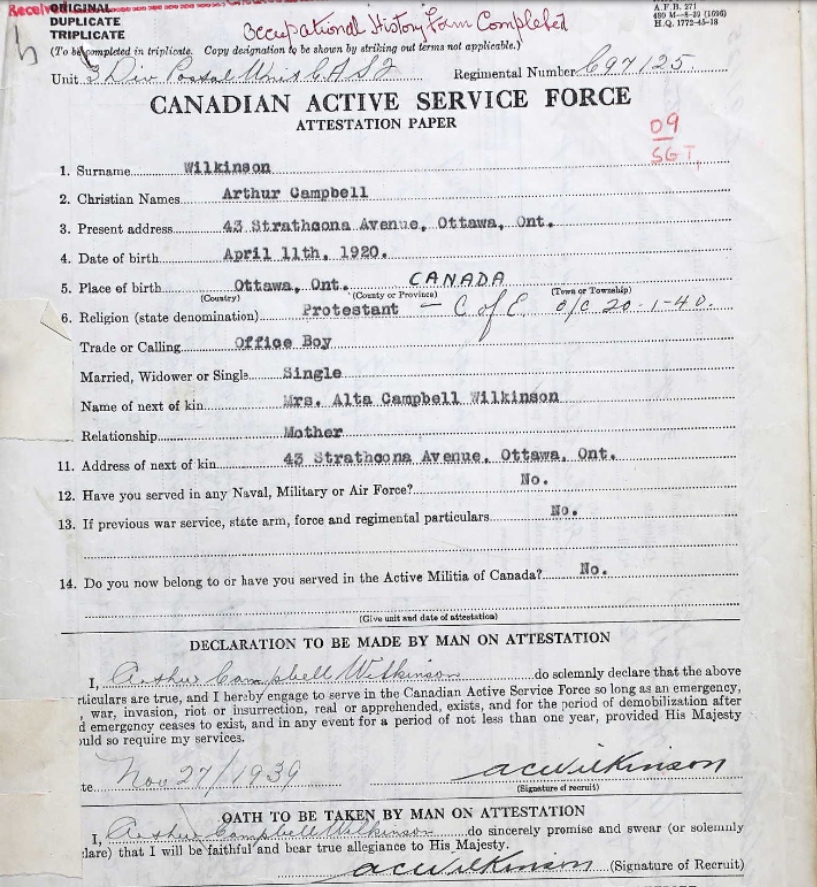 Received
ORIGINAL
DUPLICATE
TRIPLICATE
Occupational History Form Completed
A. F. B. 271
480 M—8-39 (1696)
H.Q. 1772-45-18
(To be completed in triplicate. Copy designation to be shown by striking out terms not applicable.)
Unit 3 Div Postal Unit C.A.S.F. Regimental Number C97125.
CANADIAN ACTIVE SERVICE FORCE
ATTESTATION PAPER
D9
SGT,
1. Surname Wilkinson
2. Christian Names Arthur Campbell
3. Present address 43 Strathcona Avenue, Ottawa, Ont.
4. Date of birth April 11th, 1920.
5. Place of birth Ottawa, Ont. CANADA
(Country) (County or Province) (Town or Township)
6. Religion (state denomination) Protestant — C of E. o/c 20-1-40.
Trade or Calling Office Boy
Married, Widower or Single Single
Name of next of kin Mrs. Alta Campbell Wilkinson
Relationship Mother
11. Address of next of kin 43 Strathcona Avenue, Ottawa, Ont.
12. Have you served in any Naval, Military or Air Force? No.
13. If previous war service, state arm, force and regimental particulars No.
14. Do you now belong to or have you served in the Active Militia of Canada? No.
(Give unit and date of attestation)
DECLARATION TO BE MADE BY MAN ON ATTESTATION
I, Arthur Campbell Wilkinson do solemnly declare that the above
rticulars are true, and I hereby engage to serve in the Canadian Active Service Force so long as an emergency,
, war, invasion, riot or insurrection, real or apprehended, exists, and for the period of demobilization after
d emergency ceases to exist, and in any event for a period of not less than one year, provided His Majesty
ould so require my services.
te Nov 27/1939 acWilkinson
(Signature of recruit)
OATH TO BE TAKEN BY MAN ON ATTESTATION
I, Arthur Campbell Wilkinson do sincerely promise and swear (or solemnly
lare) that I will be faithful and bear true allegiance to His Majesty.
acWilkinson (Signature of Recruit)